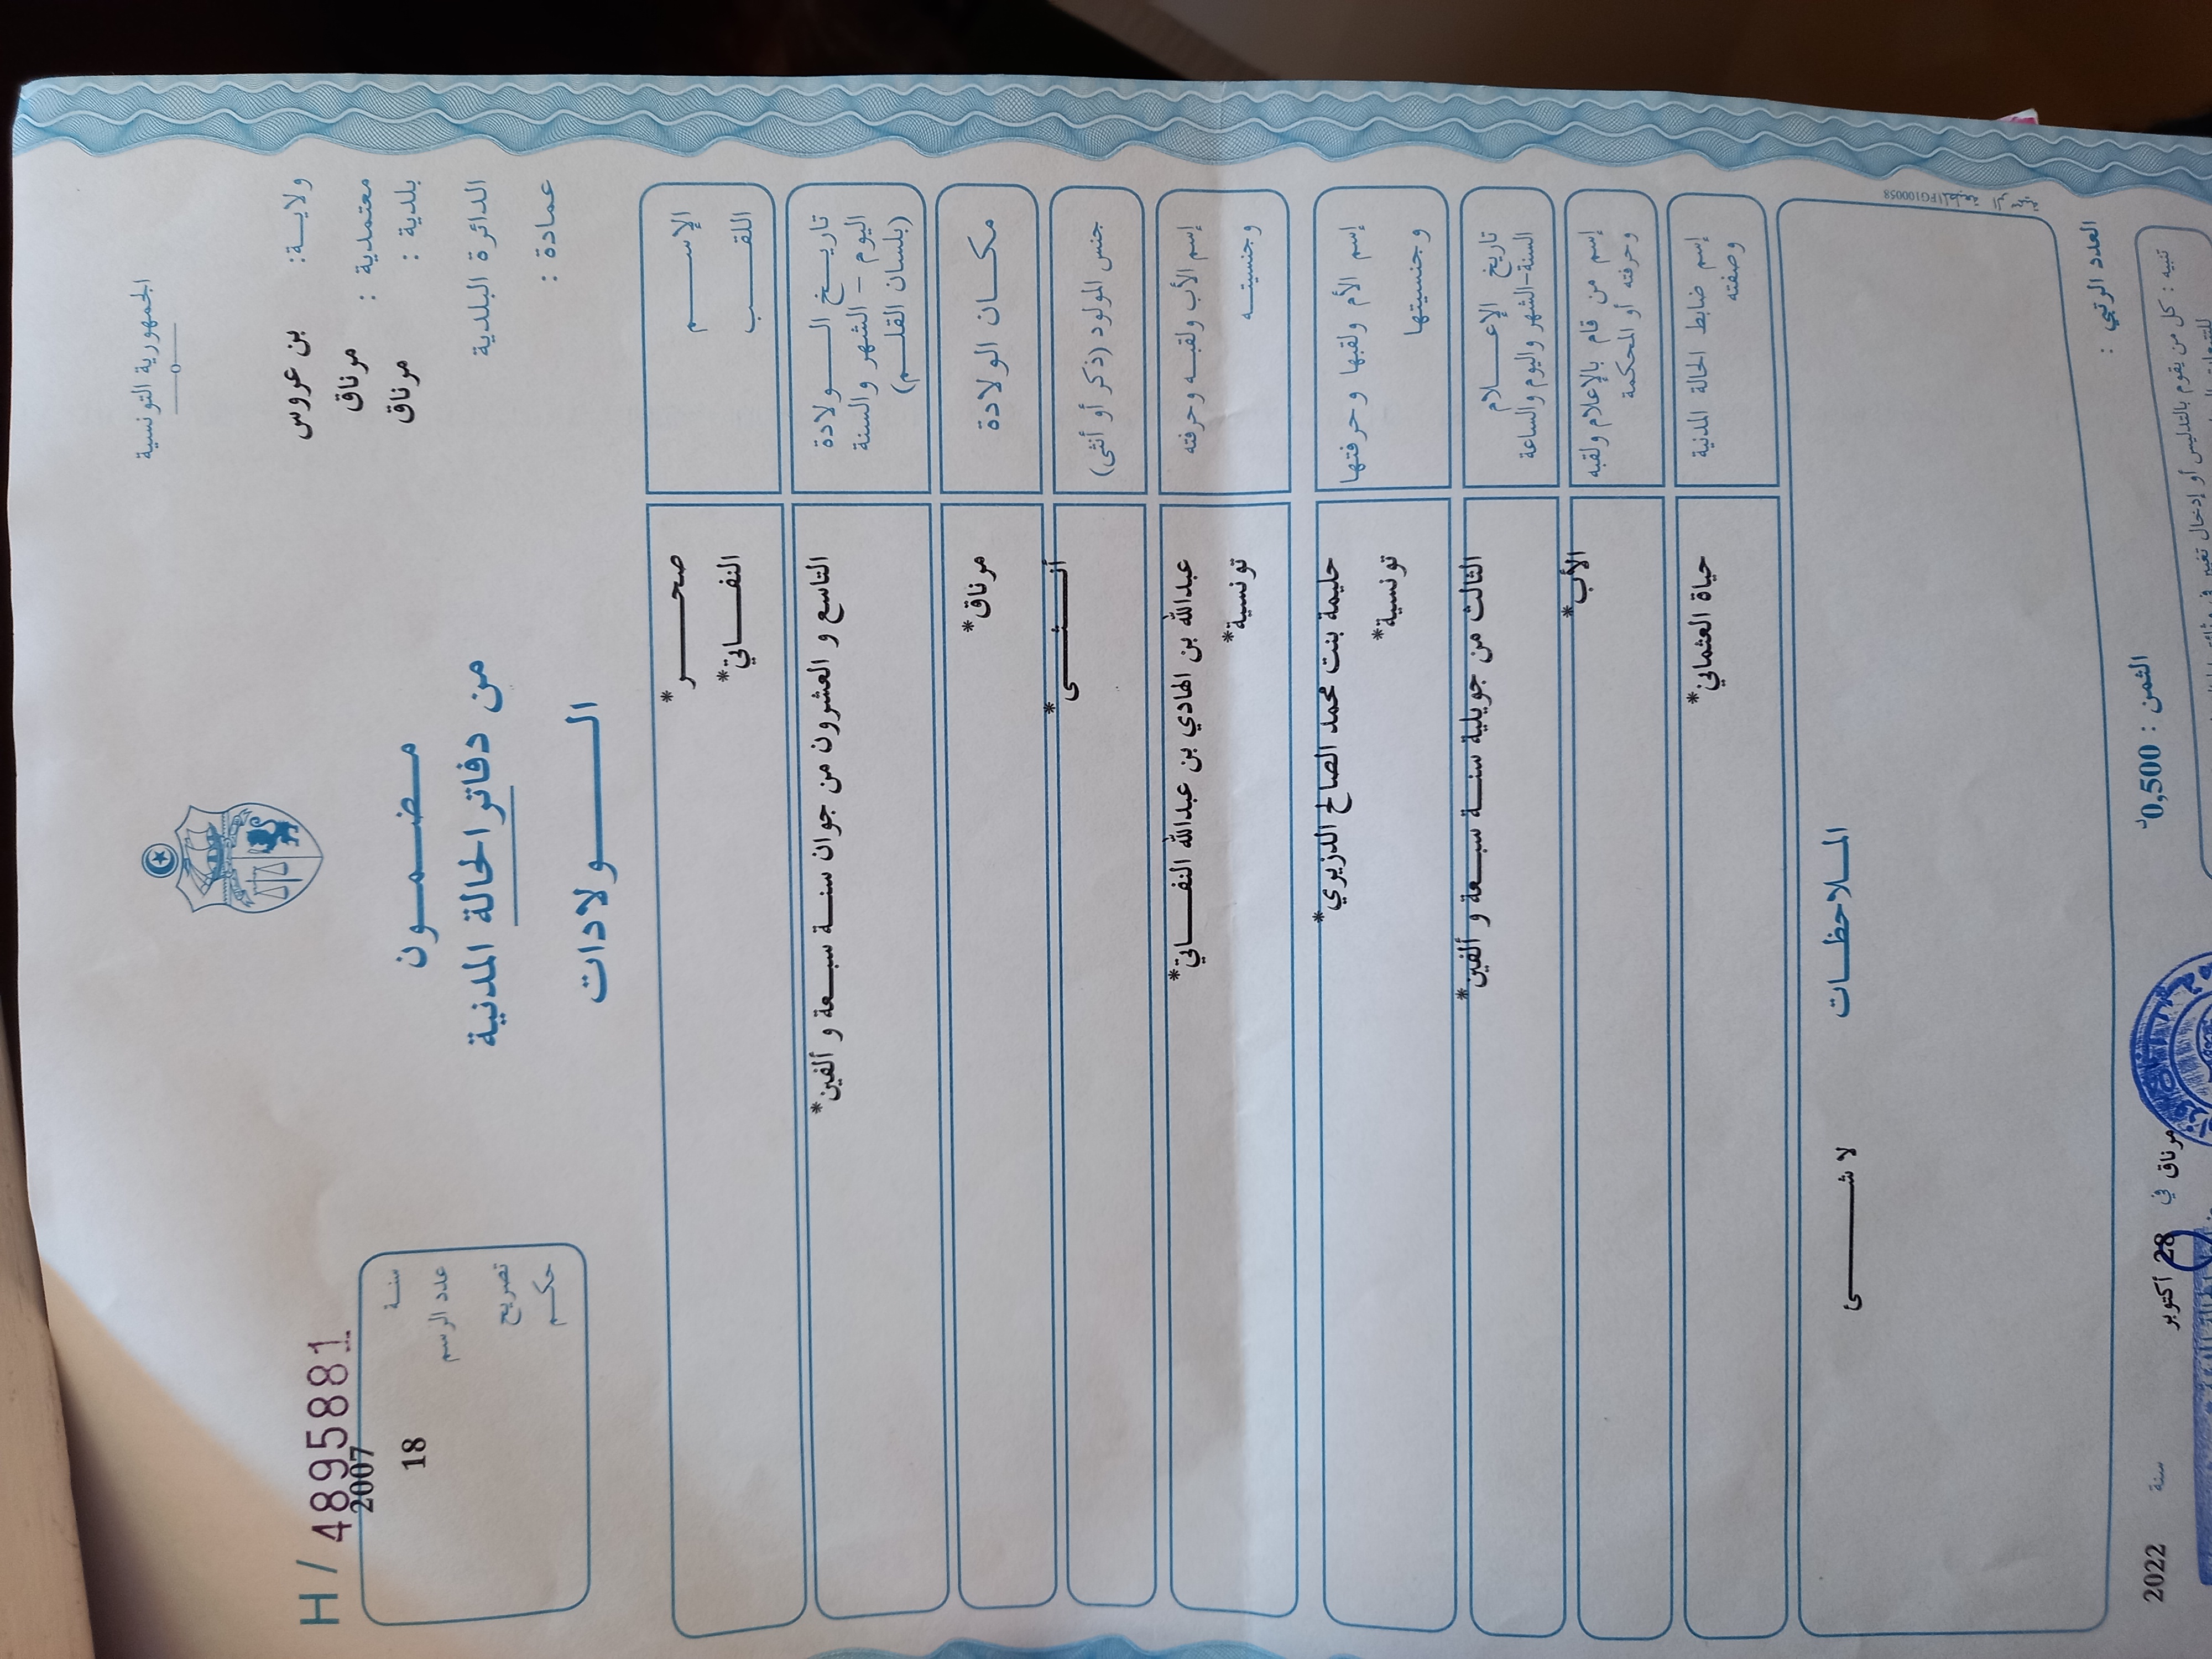 الجمهورية التونسية
ولايـة: بن عروس
معتمدية : مرناق
بلدية : مرناق
الدائرة البلدية
عمادة :
مـضـمـون
من دفاتر الحالة المدنية
الـولادات
H / 4895881
سنـة 2007
عدد الرسم 18
تصريح
حكـم
الإسـم صحـر*
اللقـب النفـاتي*
تاريـخ الـولادة
اليوم - الشهر والسنة
(بلسان القلـم)
التاسع و العشرون من جوان سنـة سبـعة و ألفين*
مكـان الولادة مرناق*
جنس المولود (ذكر أو أنثى) أنـثـى*
إسم الأب ولقبـه وحرفته عبدالله بن الهادي بن عبدالله النفـاتي*
وجنسيتـه تونسية*
إسم الأم ولقبها وحرفتها حليمة بنت محمد الصالح الدزيري*
وجنسيتها تونسية*
تاريخ الإعـلام
السنة-الشهر واليوم والساعة
الثالث من جويلية سنـة سبـعة و ألفين*
إسم من قام بالإعلام ولقبه
وحرفته أو المحكمة
الأب*
إسم ضابط الحالة المدنية
وصفته
حياة العثماني*
المـلاحظـات
لا شـئ
PG100058
العدد الرتبي :
الثمن : 0,500د
مرناق في 28 أكتوبر سنة 2022
تنبيه : كل من يقوم بالتدليس أو إدخال تغيير